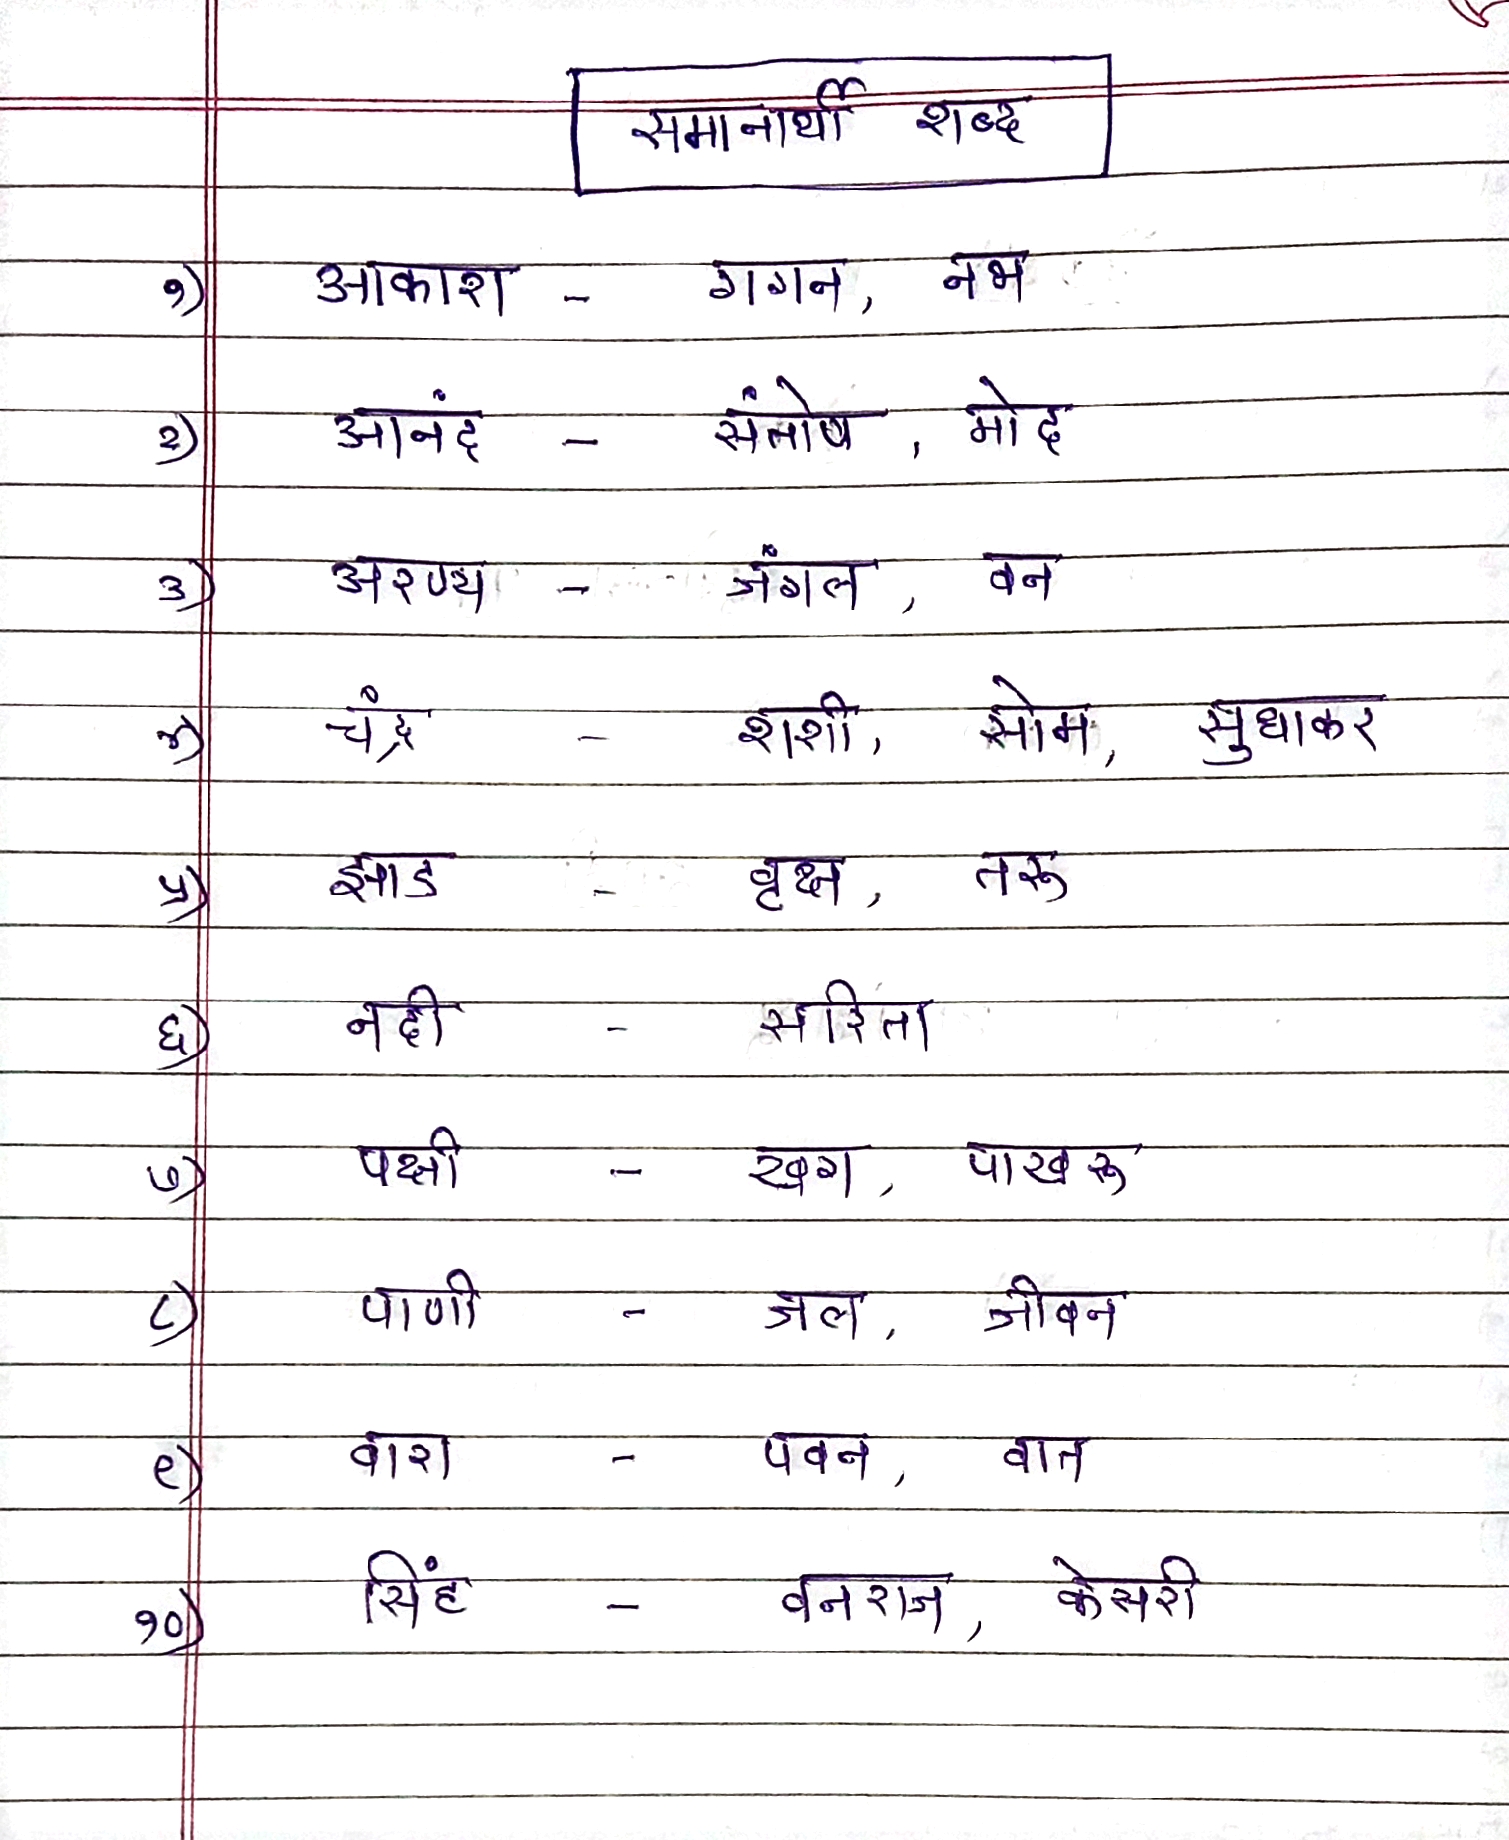 समानार्थी शब्द
१) आकाश - गगन, नभ
२) आनंद - संतोष, मोद
३) अरण्य - जंगल, वन
४) चंद्र - शशी, सोम, सुधाकर
५) झाड - वृक्ष, तरू
६) नदी - सरिता
७) पक्षी - खग, पाखरू
८) पाणी - जल, जीवन
९) वारा - पवन, वात
१०) सिंह - वनराज, केसरी